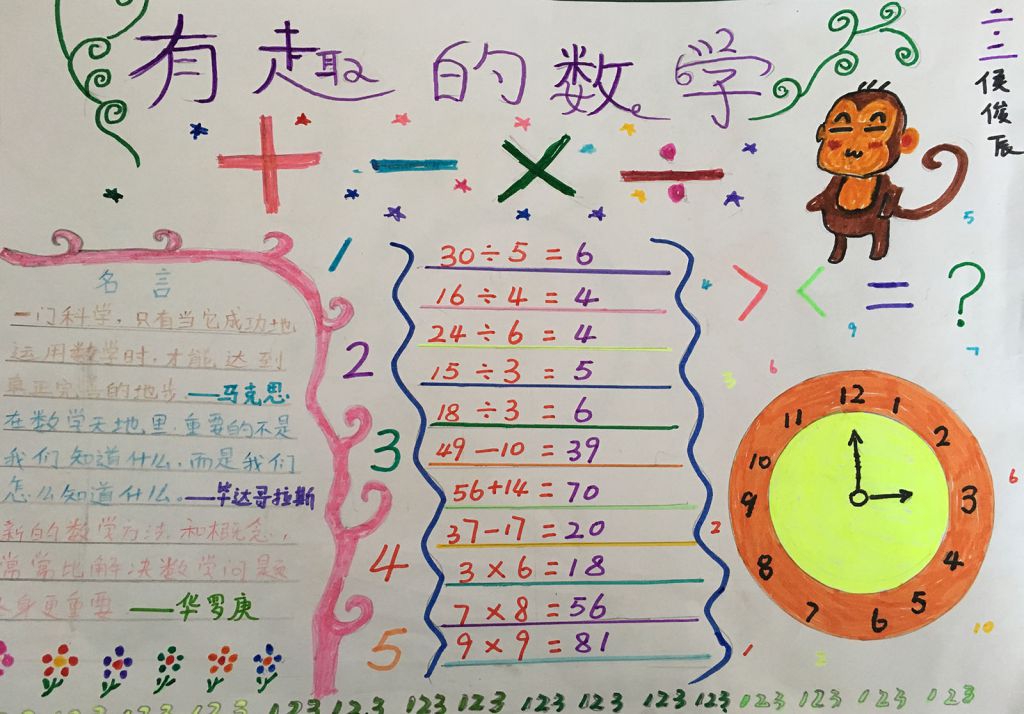 有趣的数学
二.二
侯俊辰
+ − × ÷
名言
一门科学，只有当它成功地
运用数学时，才能达到
真正完善的地步——马克思
在数学天地里，重要的不是
我们知道什么，而是我们
怎么知道什么。——毕达哥拉斯
新的数学方法和概念，
常常比解决数学问题
本身更重要——华罗庚
1
2
3
4
5
30÷5=6
16÷4=4
24÷6=4
15÷3=5
18÷3=6
49-10=39
56+14=70
37-17=20
3×6=18
7×8=56
9×9=81
> < = ?
5
4
9
7
3
6
6
2
1
2
10
12
1
2
3
4
5
6
7
8
9
10
11
123 123 123 123 123 123 123 123 123 123 123 123 123 123